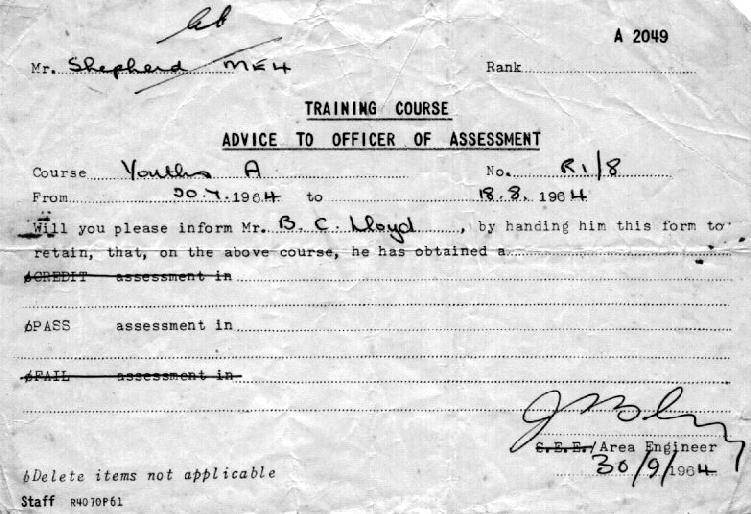 A 2049
Mr. Shepherd ME4 Rank
TRAINING COURSE
ADVICE TO OFFICER OF ASSESSMENT
Course Youths A No. R1/8
From 20.7.1964 to 18.8.1964
Will you please inform Mr. B. C. Lloyd, by handing him this form to
retain, that, on the above course, he has obtained a
CREDIT assessment in
PASS assessment in
FAIL assessment in
S.E.E./Area Engineer
30/9/1964
Delete items not applicable
Staff R4070P61